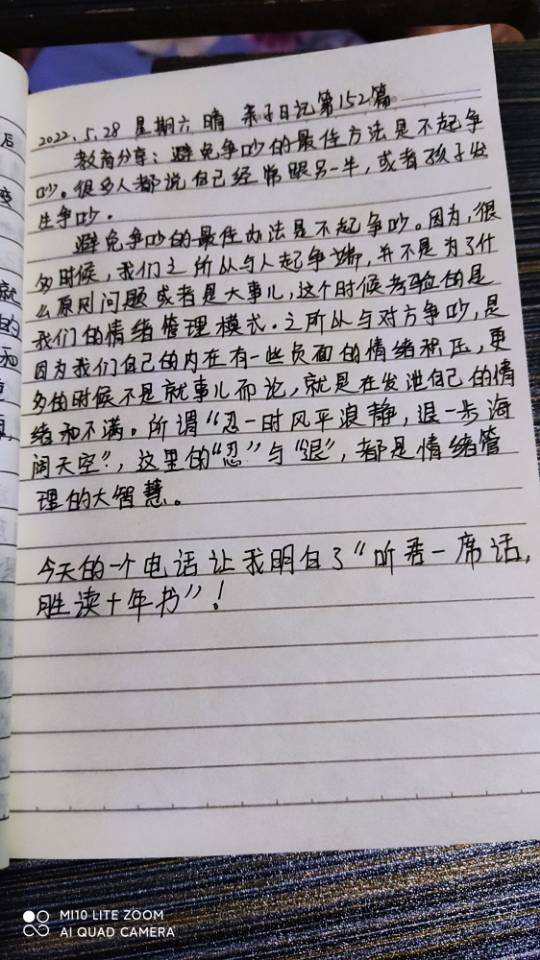 2022.5.28 星期六 晴 亲子日记第152篇
教育分享：避免争吵的最佳方法是不起争
吵。很多人都说自己经常跟另一半，或者孩子发
生争吵.
避免争吵的最佳办法是不起争吵。因为，很
多时候，我们之所以与人起争端，并不是为了什
么原则问题或者是大事儿，这个时候考验的是
我们的情绪管理模式.之所以与对方争吵，是
因为我们自己的内在有一些负面的情绪积压，更
多的时候不是就事儿而论，就是在发泄自己的情
绪和不满。所谓“忍一时风平浪静，退一步海
阔天空”，这里的“忍”与“退”，都是情绪管
理的大智慧。
今天的一个电话让我明白了“听君一席话，
胜读十年书”！
后
变
就
的
和
MI10 LITE ZOOM
AI QUAD CAMERA